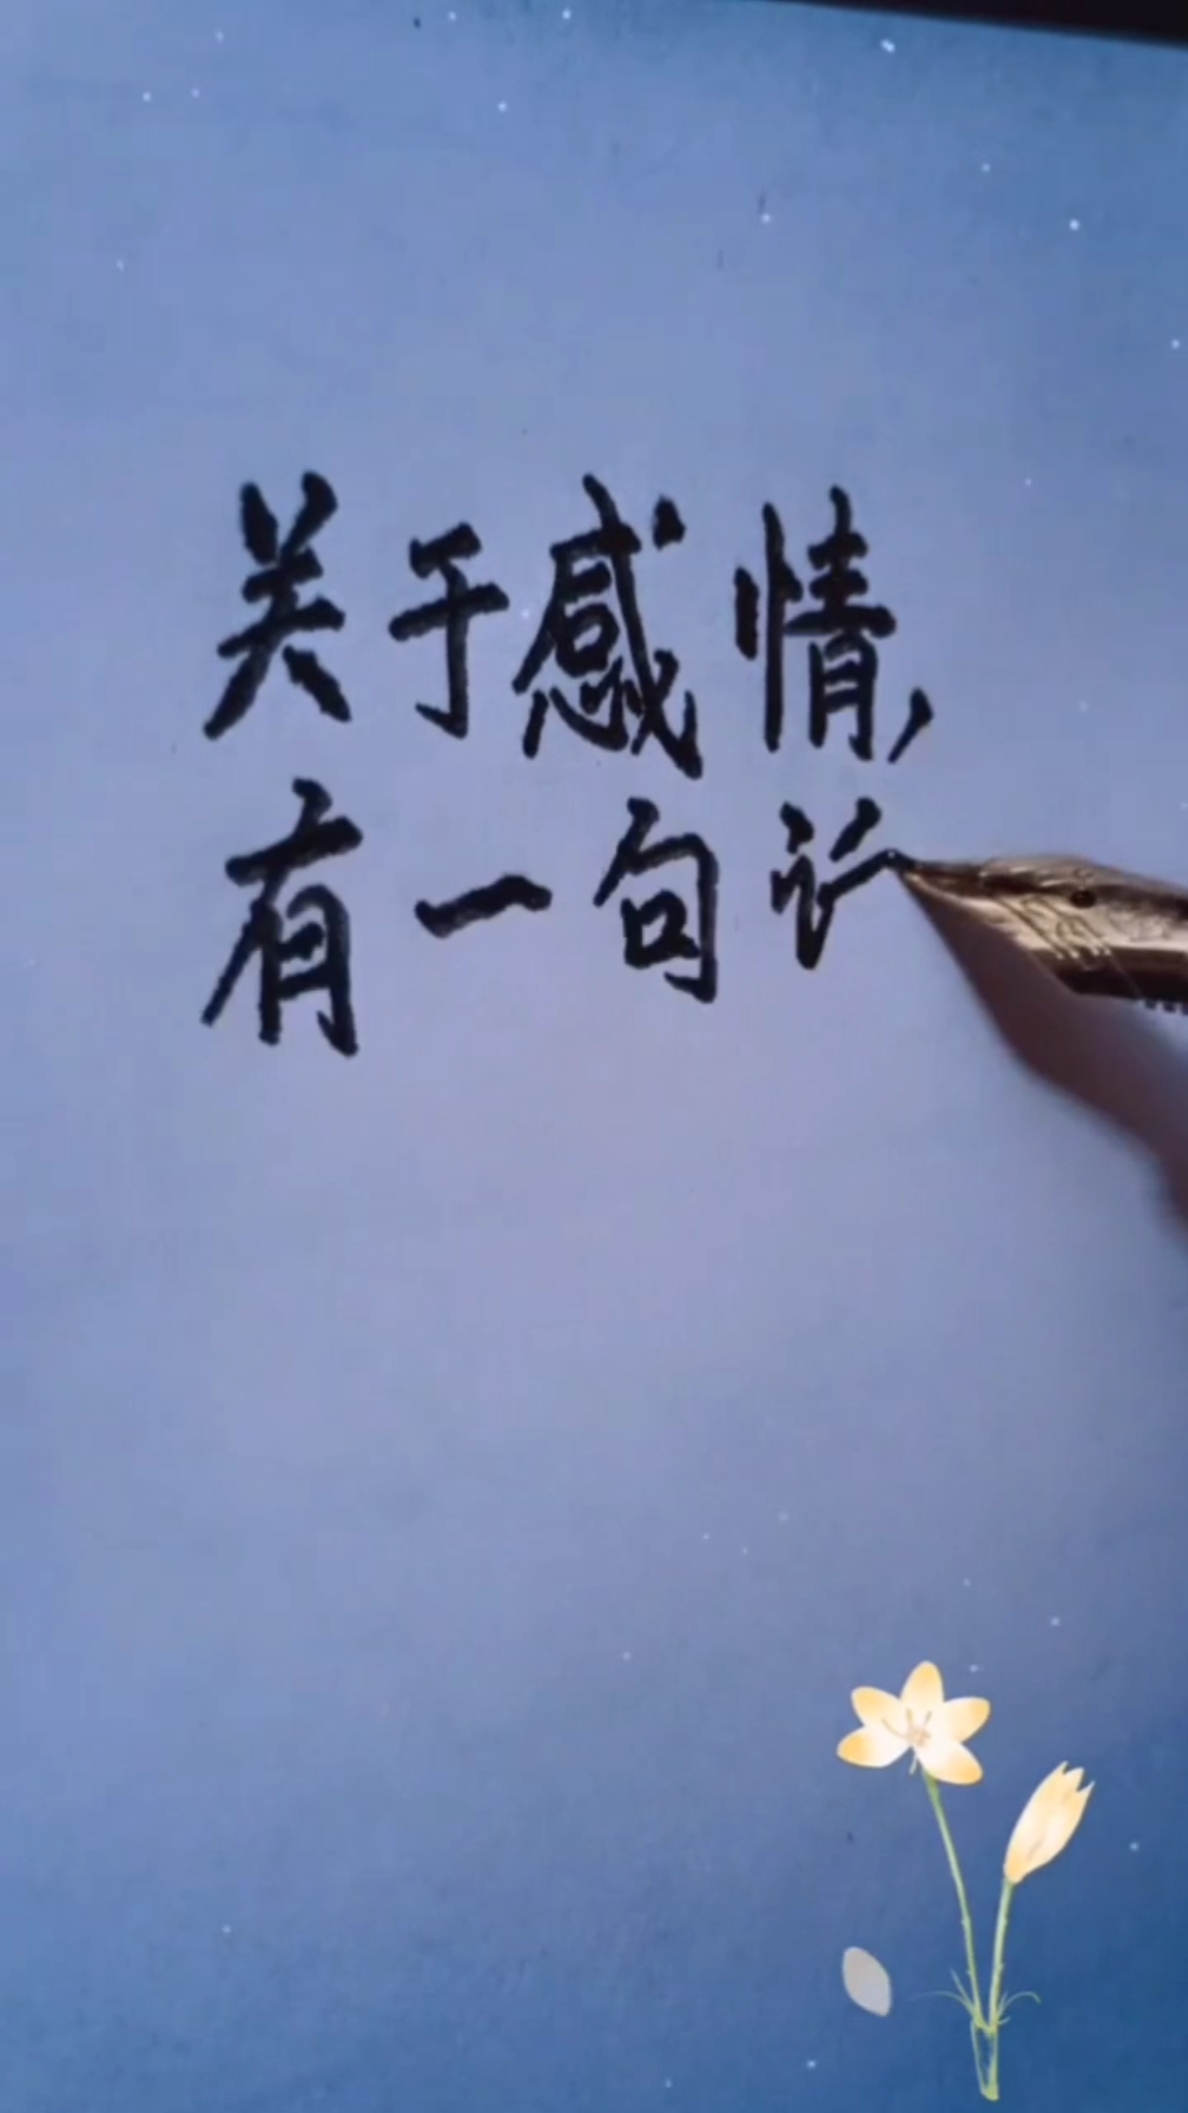 关于感情,
有一句